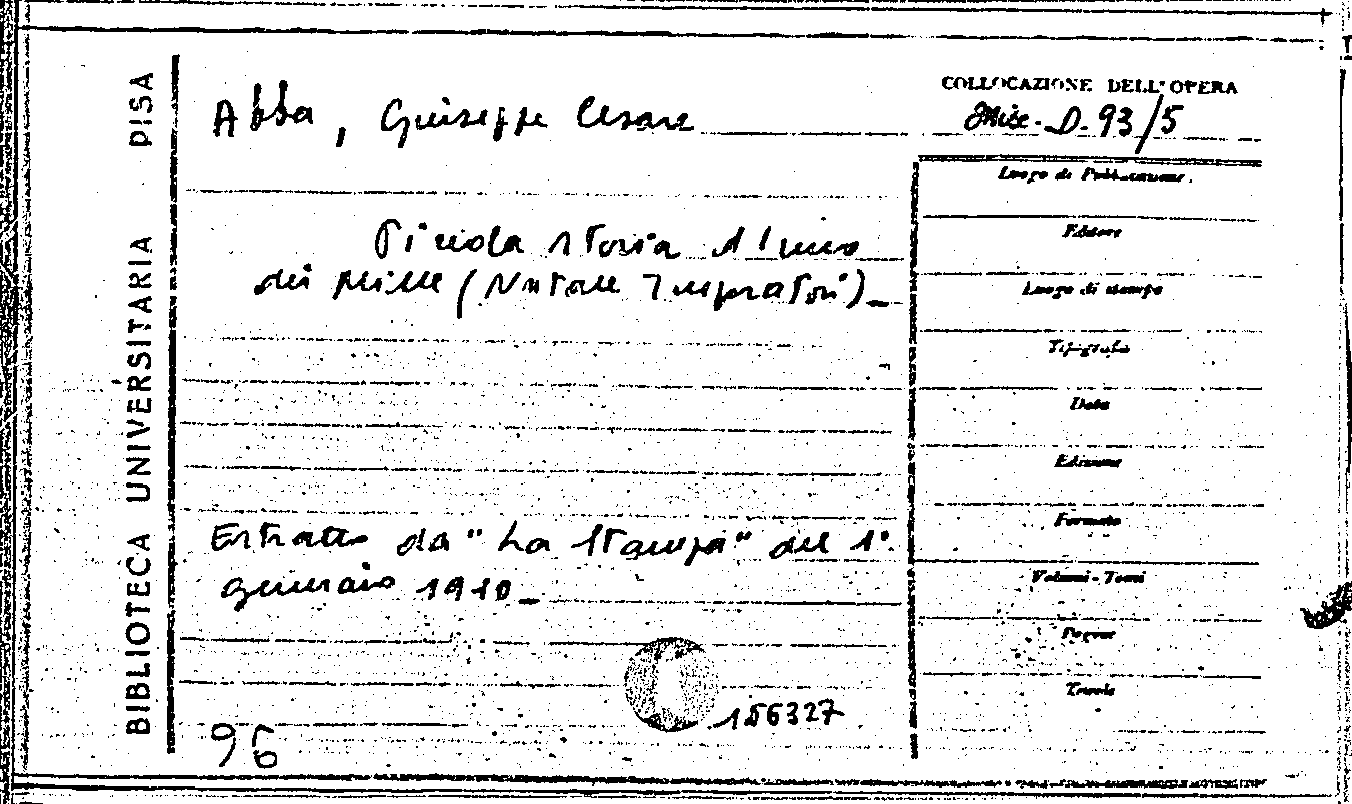 BIBLIOTECA UNIVERSITARIA PISA
COLLOCAZIONE DELL'OPERA
Abba, Giuseppe Cesare
Misc. D. 93/5
Luogo di Pubblicazione.
Piccola storia d'uno
Editore
dei Mille (Natale Imperatori)_
Luogo di stampa
Tipografia
Data
Edizione
Formato
Estratto da "La Stampa" del 1°.
gennaio 1910_
Volumi - Tomi
Pagine
Tavole
156327
96